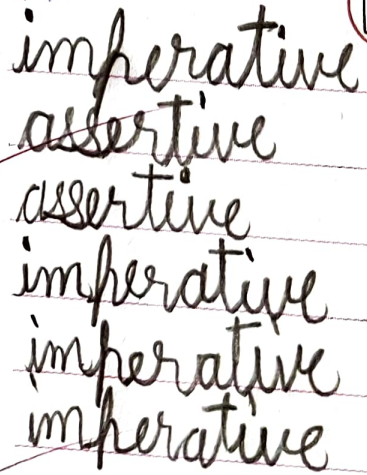 imperative
assertive
assertive
imperative
imperative
imperative